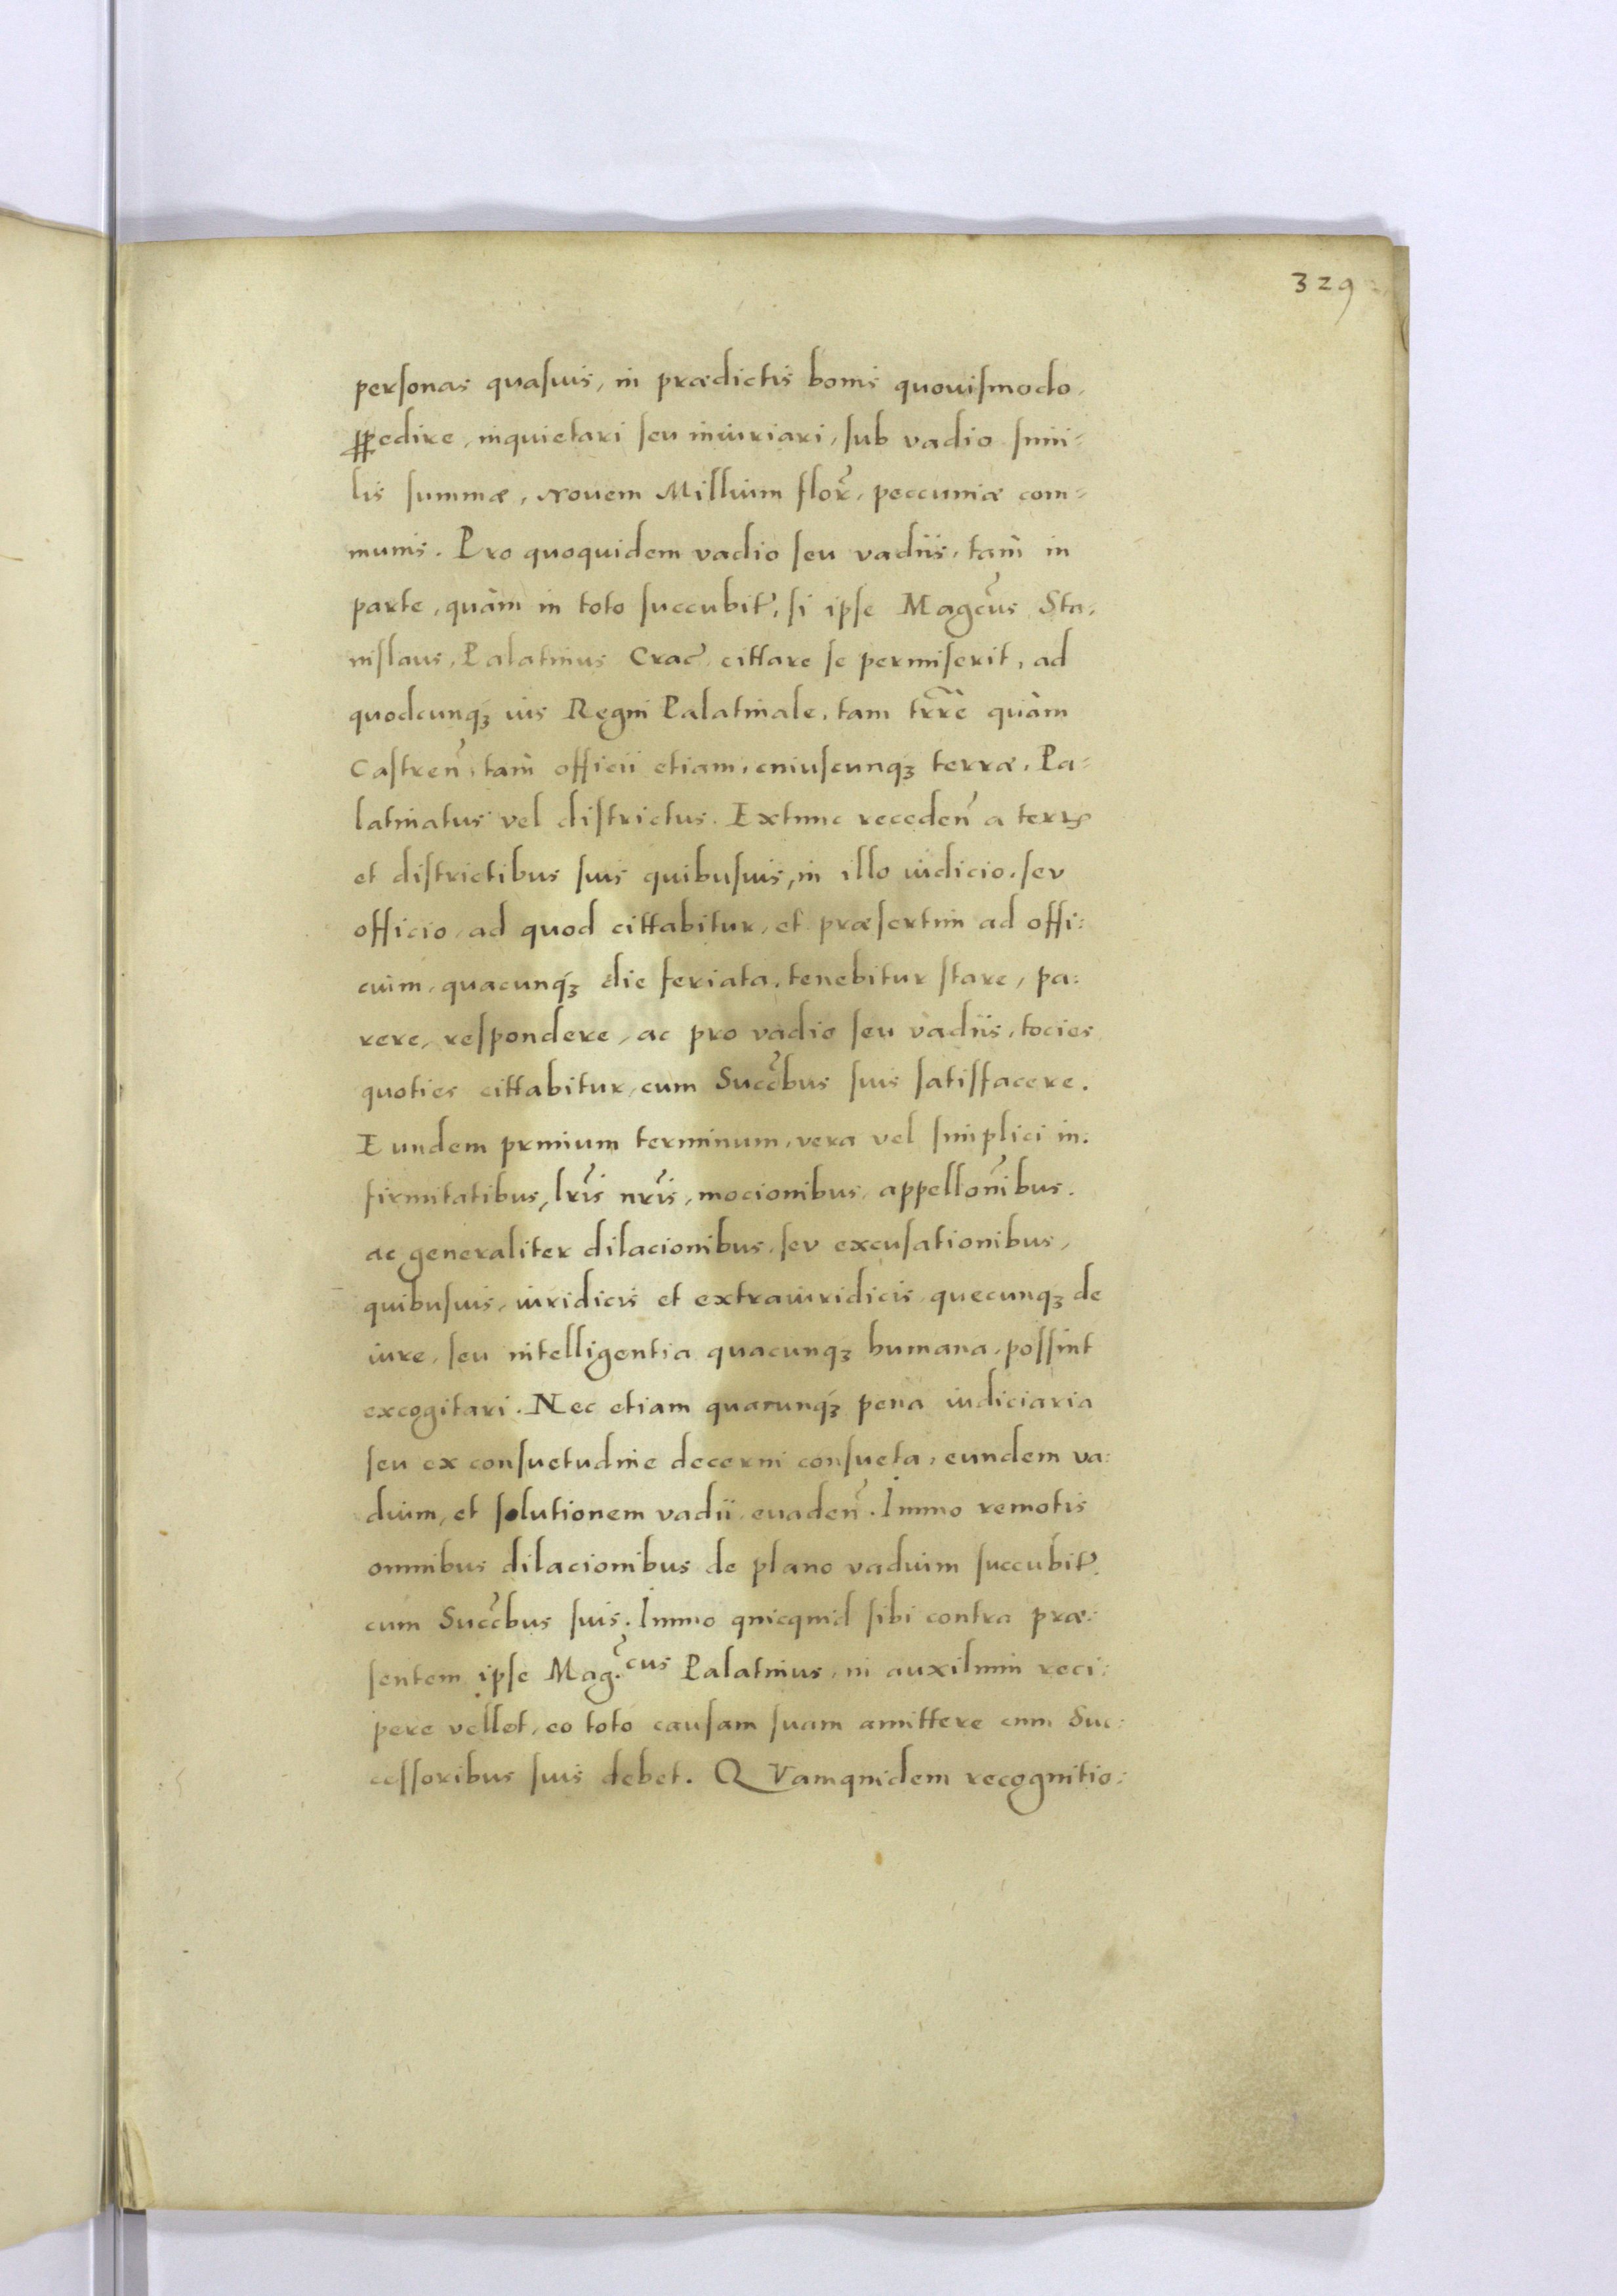 329
personas quasuis, in prædictis bonis quouismodo,
ꝑpedire, inquietari seu iniuriari, sub vadio simi=
lis summæ, Nouem Millium flor̃, peccuniæ com=
munis. Pro quoquidem vadio seu vadiis, tam̀ in
parte, quàm in toto succubit̃, si ipse Magc̃us Sta:
nislaus, Palatinus Crac̃ cittare se permiserit, ad
quodcunqꝫ ius Regni Palatinale, tam tr̃re quàm
Castreñ, tam̀ officii etiam, cuiuscunqꝫ terræ, Pa=
latinatus vel districtus. Extunc recedeñ a terris
et districtibus suis quibusuis, in illo iudicio, sev
officio, ad quod cittabitur, et præsertim ad offi:
cium, quacunqꝫ́ die feriata, tenebitur stare, pa:
rere, respondere, ac pro vadio seu vadiis, tocies
quoties cittabitur, cum Succ̃bus suis satisfacere.
Eundem primum terminum, vera vel simplici in:
firmitatibus, lr̃is nr̃is, mocionibus, appellon̄ibus.
ac generaliter dilacionibus, sev excusationibus,
quibusuis, iuridicis et extraiuridicis quecunqꝫ de
iure, seu intelligentia quacunqꝫ humana, possint
excogitari. Nec etiam quacunqꝫ́ pena iudiciaria
seu ex consuetudine decerni consueta, eundem va:
dium, et solutionem vadii euaden̄. Immo remotis
omnibus dilacionibus de plano vadium succubit̃.
cum Succ̃bus suis. Immo quicquid sibi contra præ:
sentem ipse Mag.cus Palatinus, in auxilium reci:
pere vellet, eo toto causam suam amittere cum Suc:
cessoribus suis debet. QVamquidem recognitio: